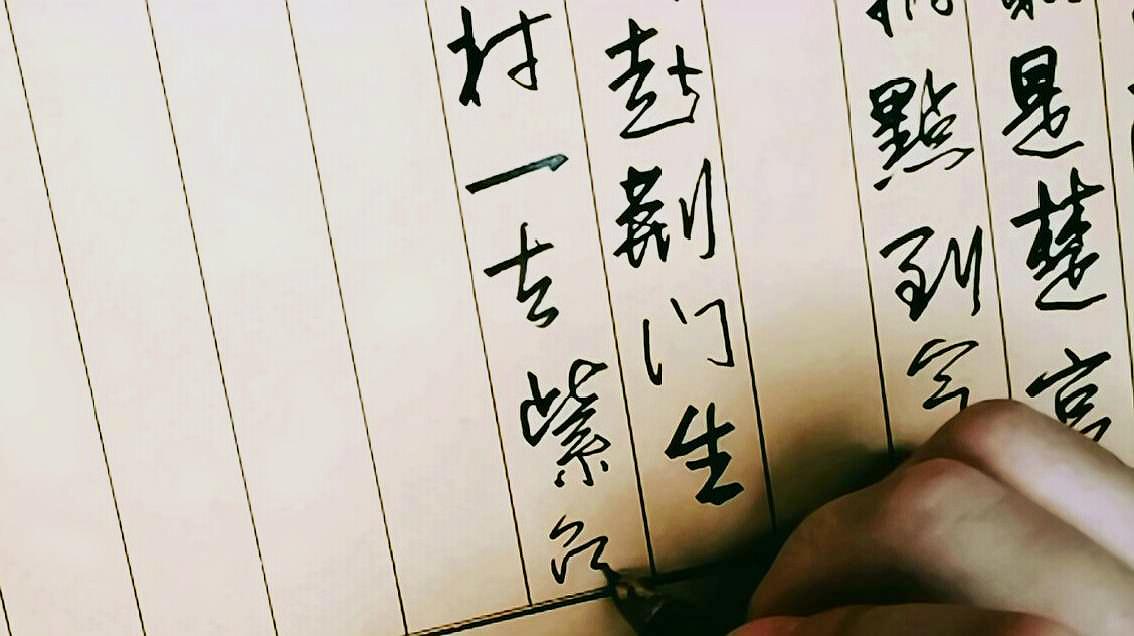 是楚宫
點到今
赴荆门生
村一去紫